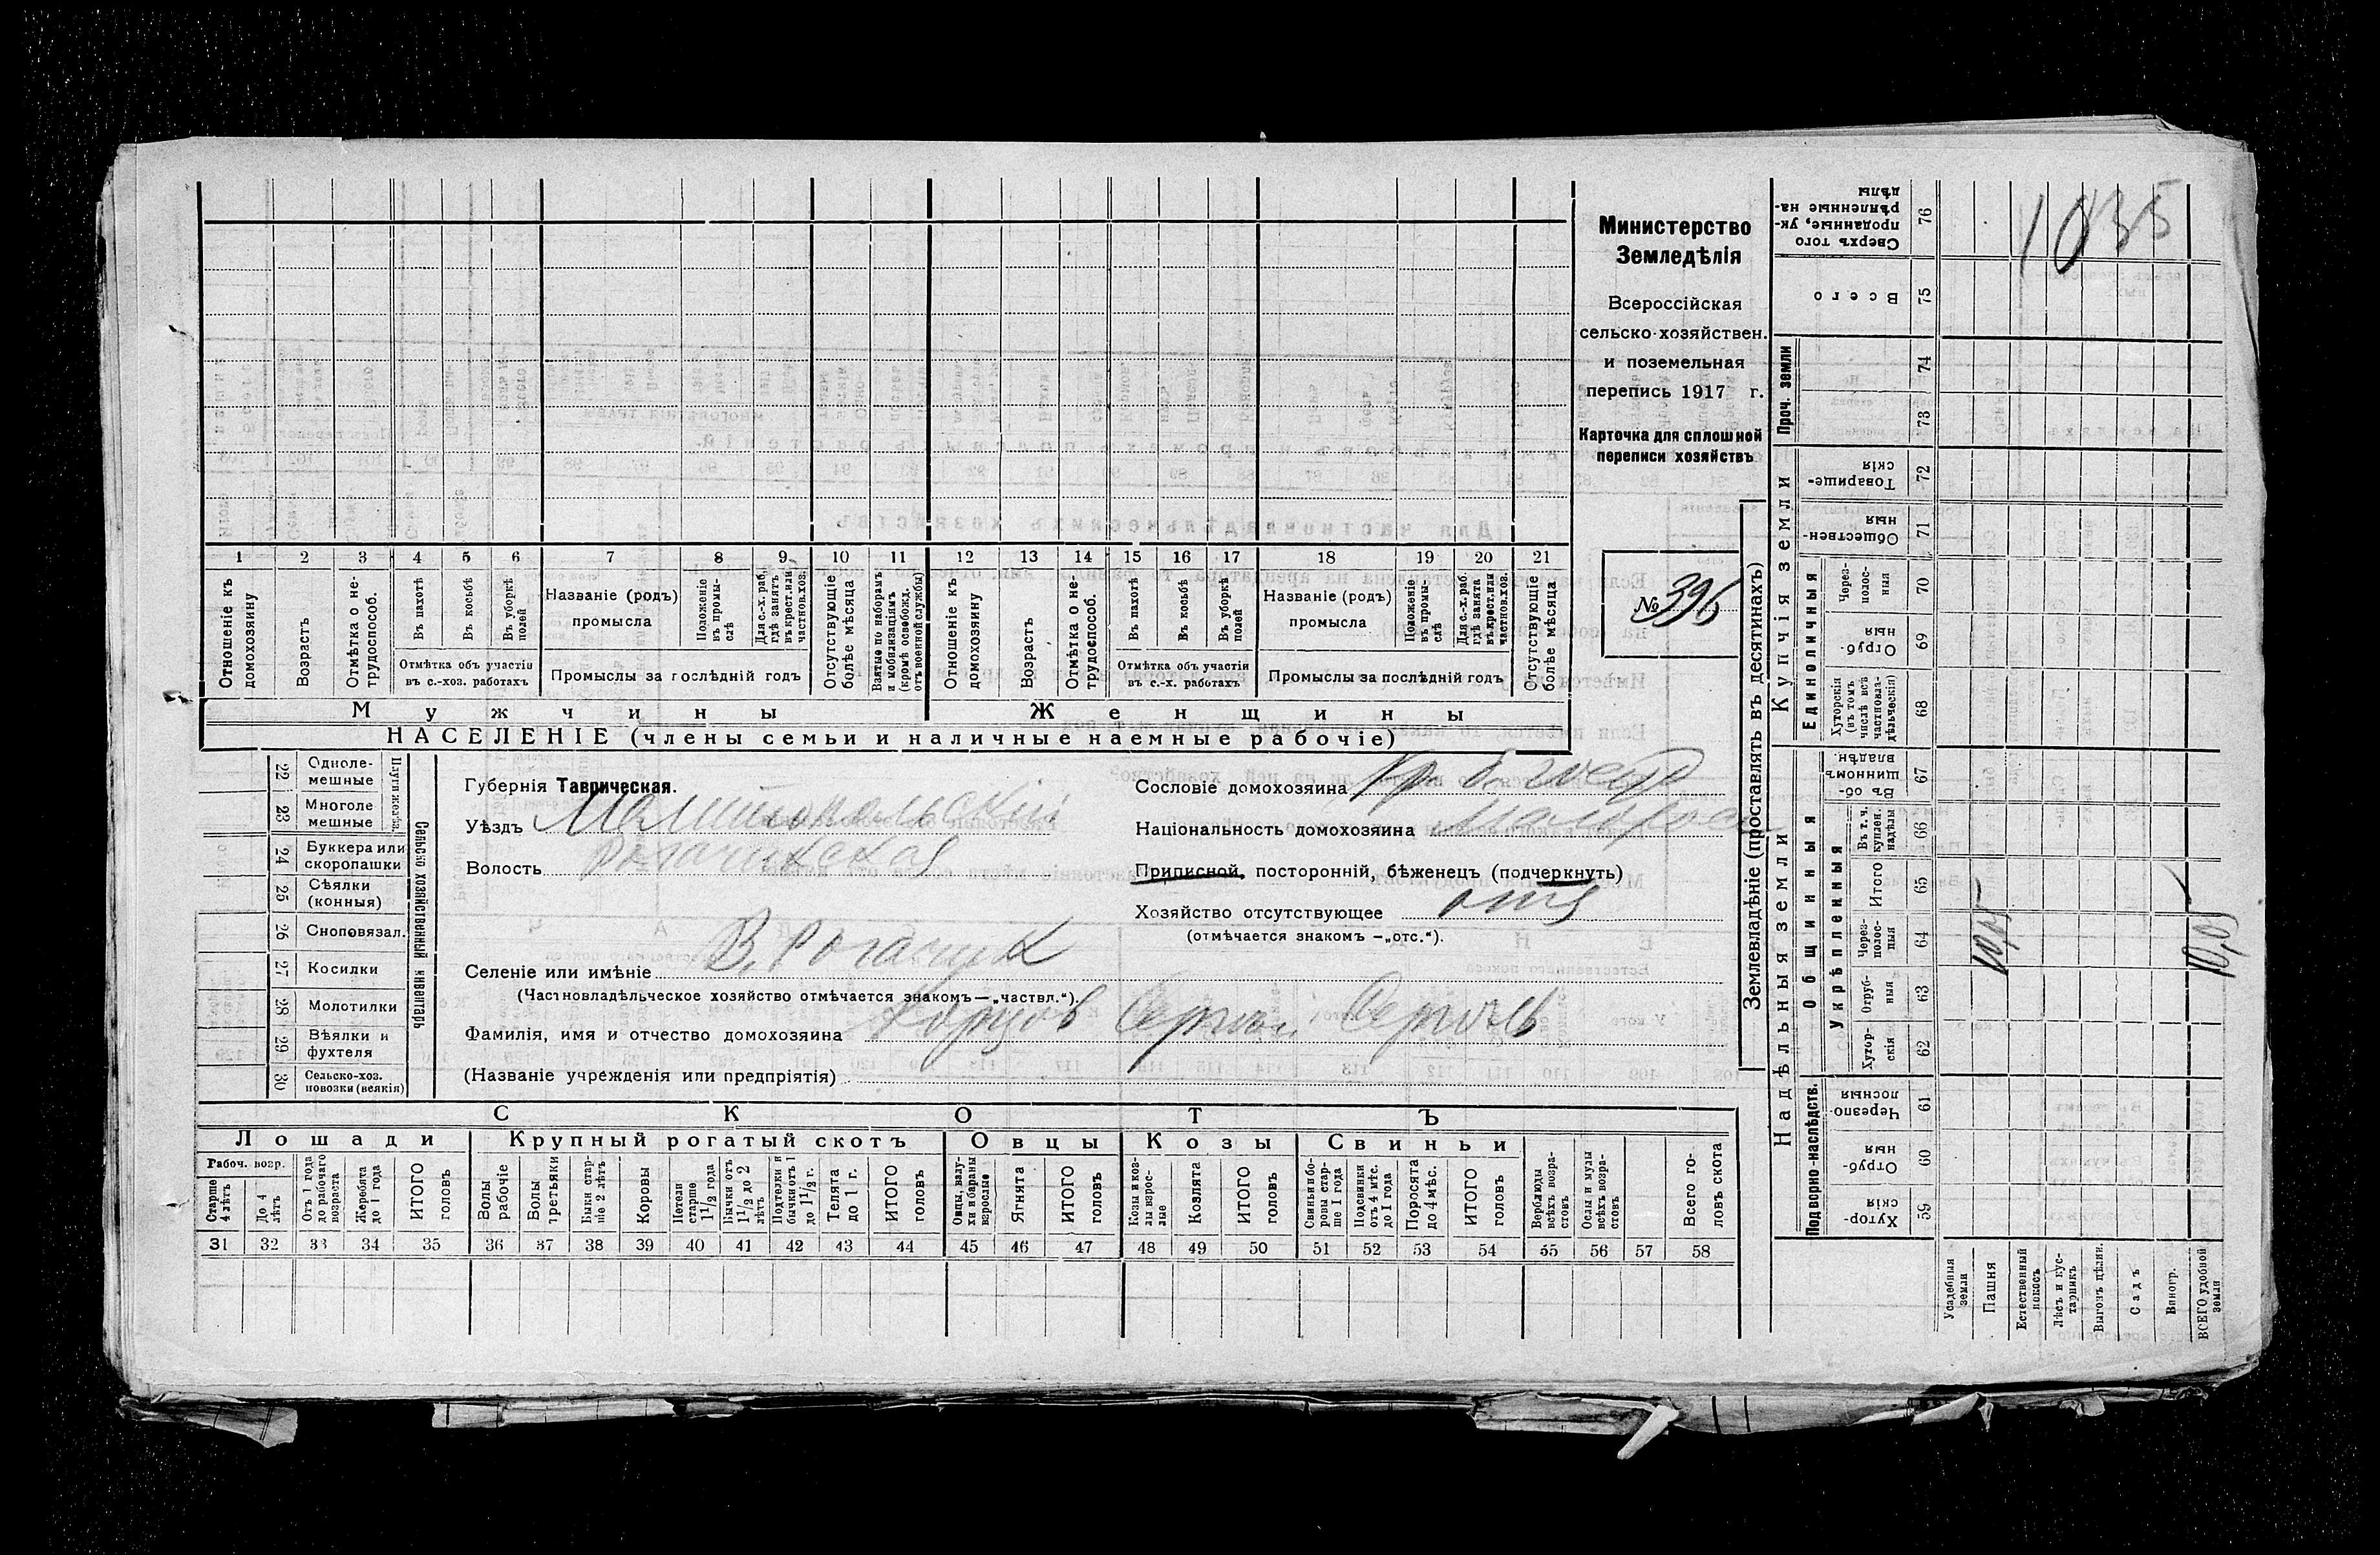 Министерство
Земледѣлія
Всероссійская
сельско-хозяйствен.
и поземельная
перепись 1917 г.
Карточка для сплошной
переписи хозяйствъ
№ 396
1 2 3 4 5 6 7 8 9 10 11 12 13 14 15 16 17 18 19 20 21
Отношеніе къ домохозяину
Возрастъ
Отмѣтка о не-трудоспособ.
Въ пахотѣ
Въ косьбѣ
Въ уборкѣ полей
Отмѣтка объ участіи
въ с.-хоз. работахъ
Названіе (родъ)
промысла
Положеніе въ промы-слѣ
Для с.-х. раб. гдѣ занятъ въ крест. или частнов. хоз.
Промыслы за послѣдній годъ
Отсутствующіе болѣе мѣсяца
Взятые по наборамъ и мобилизаціямъ (кромѣ освобожд. отъ военной службы)
Отношеніе къ домохозяину
Возрастъ
Отмѣтка о не-трудоспособ.
Въ пахотѣ
Въ косьбѣ
Въ уборкѣ полей
Отмѣтка объ участіи
въ с.-х. работахъ
Названіе (родъ)
промысла
Положеніе въ промы-слѣ
Для с.-х. раб. гдѣ занята въ крест. или частнов. хоз.
Промыслы за послѣдній годъ
Отсутствующіе болѣе мѣсяца
Мужчины
Женщины
НАСЕЛЕНІЕ (члены семьи и наличные наемные рабочіе)
22 Одноле-мешные
23 Многоле мешные
Плуги желѣз.
24 Буккера или скоропашки
25 Сѣялки (конныя)
26 Сноповязал.
27 Косилки
28 Молотилки
29 Вѣялки и фухтеля
30 Сельско-хоз. повозки (всякія)
Сельско хозяйственный инвентарь
Губернія Таврическая.
Уѣздъ Мелитопольскій
Волость Рогачикская
Селеніе или имѣніе В. Рогачик
(Частновладѣльческое хозяйство отмѣчается знакомъ—„частвл.“).
Фамилія, имя и отчество домохозяина Сергѣй
(Названіе учрежденія или предпріятія)
Сословіе домохозяина
Національность домохозяина малоросс
Приписной, посторонній, бѣженецъ (подчеркнуть)
Хозяйство отсутствующее отс
(отмѣчается знакомъ —„отс.“).
СКОТЪ
Лошади
Крупный рогатый скотъ
Овцы
Козы
Свиньи
Рабоч. возр.
Старше 4 лѣтъ
До 4 лѣтъ
Отъ 1 года до рабочаго возраста
Жеребята до 1 года
ИТОГО головъ
Волы рабочіе
Волы третьяки
Быки стар-ше 2 лѣтъ
Коровы
Нетели старше 1½ года
Бычки отъ 1½ до 2 лѣтъ
Подтелки и бычки отъ 1 до 1½ г.
Телята до 1 г.
ИТОГО головъ
Овцы, валу-хи и бараны взрослые
Ягнята
ИТОГО головъ
Козы и коз-лы взрос-лые
Козлята
ИТОГО головъ
Свиньи и бо-ровы стар-ше 1 года
Подсвинки отъ 4 мѣс. до 1 года
Поросята до 4 мѣс.
ИТОГО головъ
Верблюды всѣхъ возра-стовъ
Ослы и мулы всѣхъ возра-стовъ
Всего го-ловъ скота
31 32 33 34 35 36 37 38 39 40 41 42 43 44 45 46 47 48 49 50 51 52 53 54 55 56 57 58
Землевладѣніе (проставлять въ десятинахъ)
Надѣльныя земли
Купчія земли
Проч. земли
Подворно-наслѣдств.
Общинныя
Укрѣпленныя
Единоличныя
Хутор-скія 59
Отруб-ныя 60
Черезпо-лосныя 61
Хутор-скія 62
Отруб-ныя 63
Через-полос-ныя 64
Итого 65
Въ т. ч. куплен. надѣлы 66
Въ об-щинномъ владѣн. 67
Хуторскія (въ томъ числѣ всѣ частновла-дѣльческія) 68
Отруб-ныя 69
Через-полос-ныя 70
Обществен-ныя 71
Товарище-скія 72
73
74
Всего 75
Сверхъ того проданные, ук-рѣпленные на-дѣлы 76
Усадебныя земли
Пашня
Естественный покосъ
Лѣсъ и кус-тарникъ
Выгонъ цѣлин.
Садъ
Виногр.
ВСЕГО удобной земли
1035